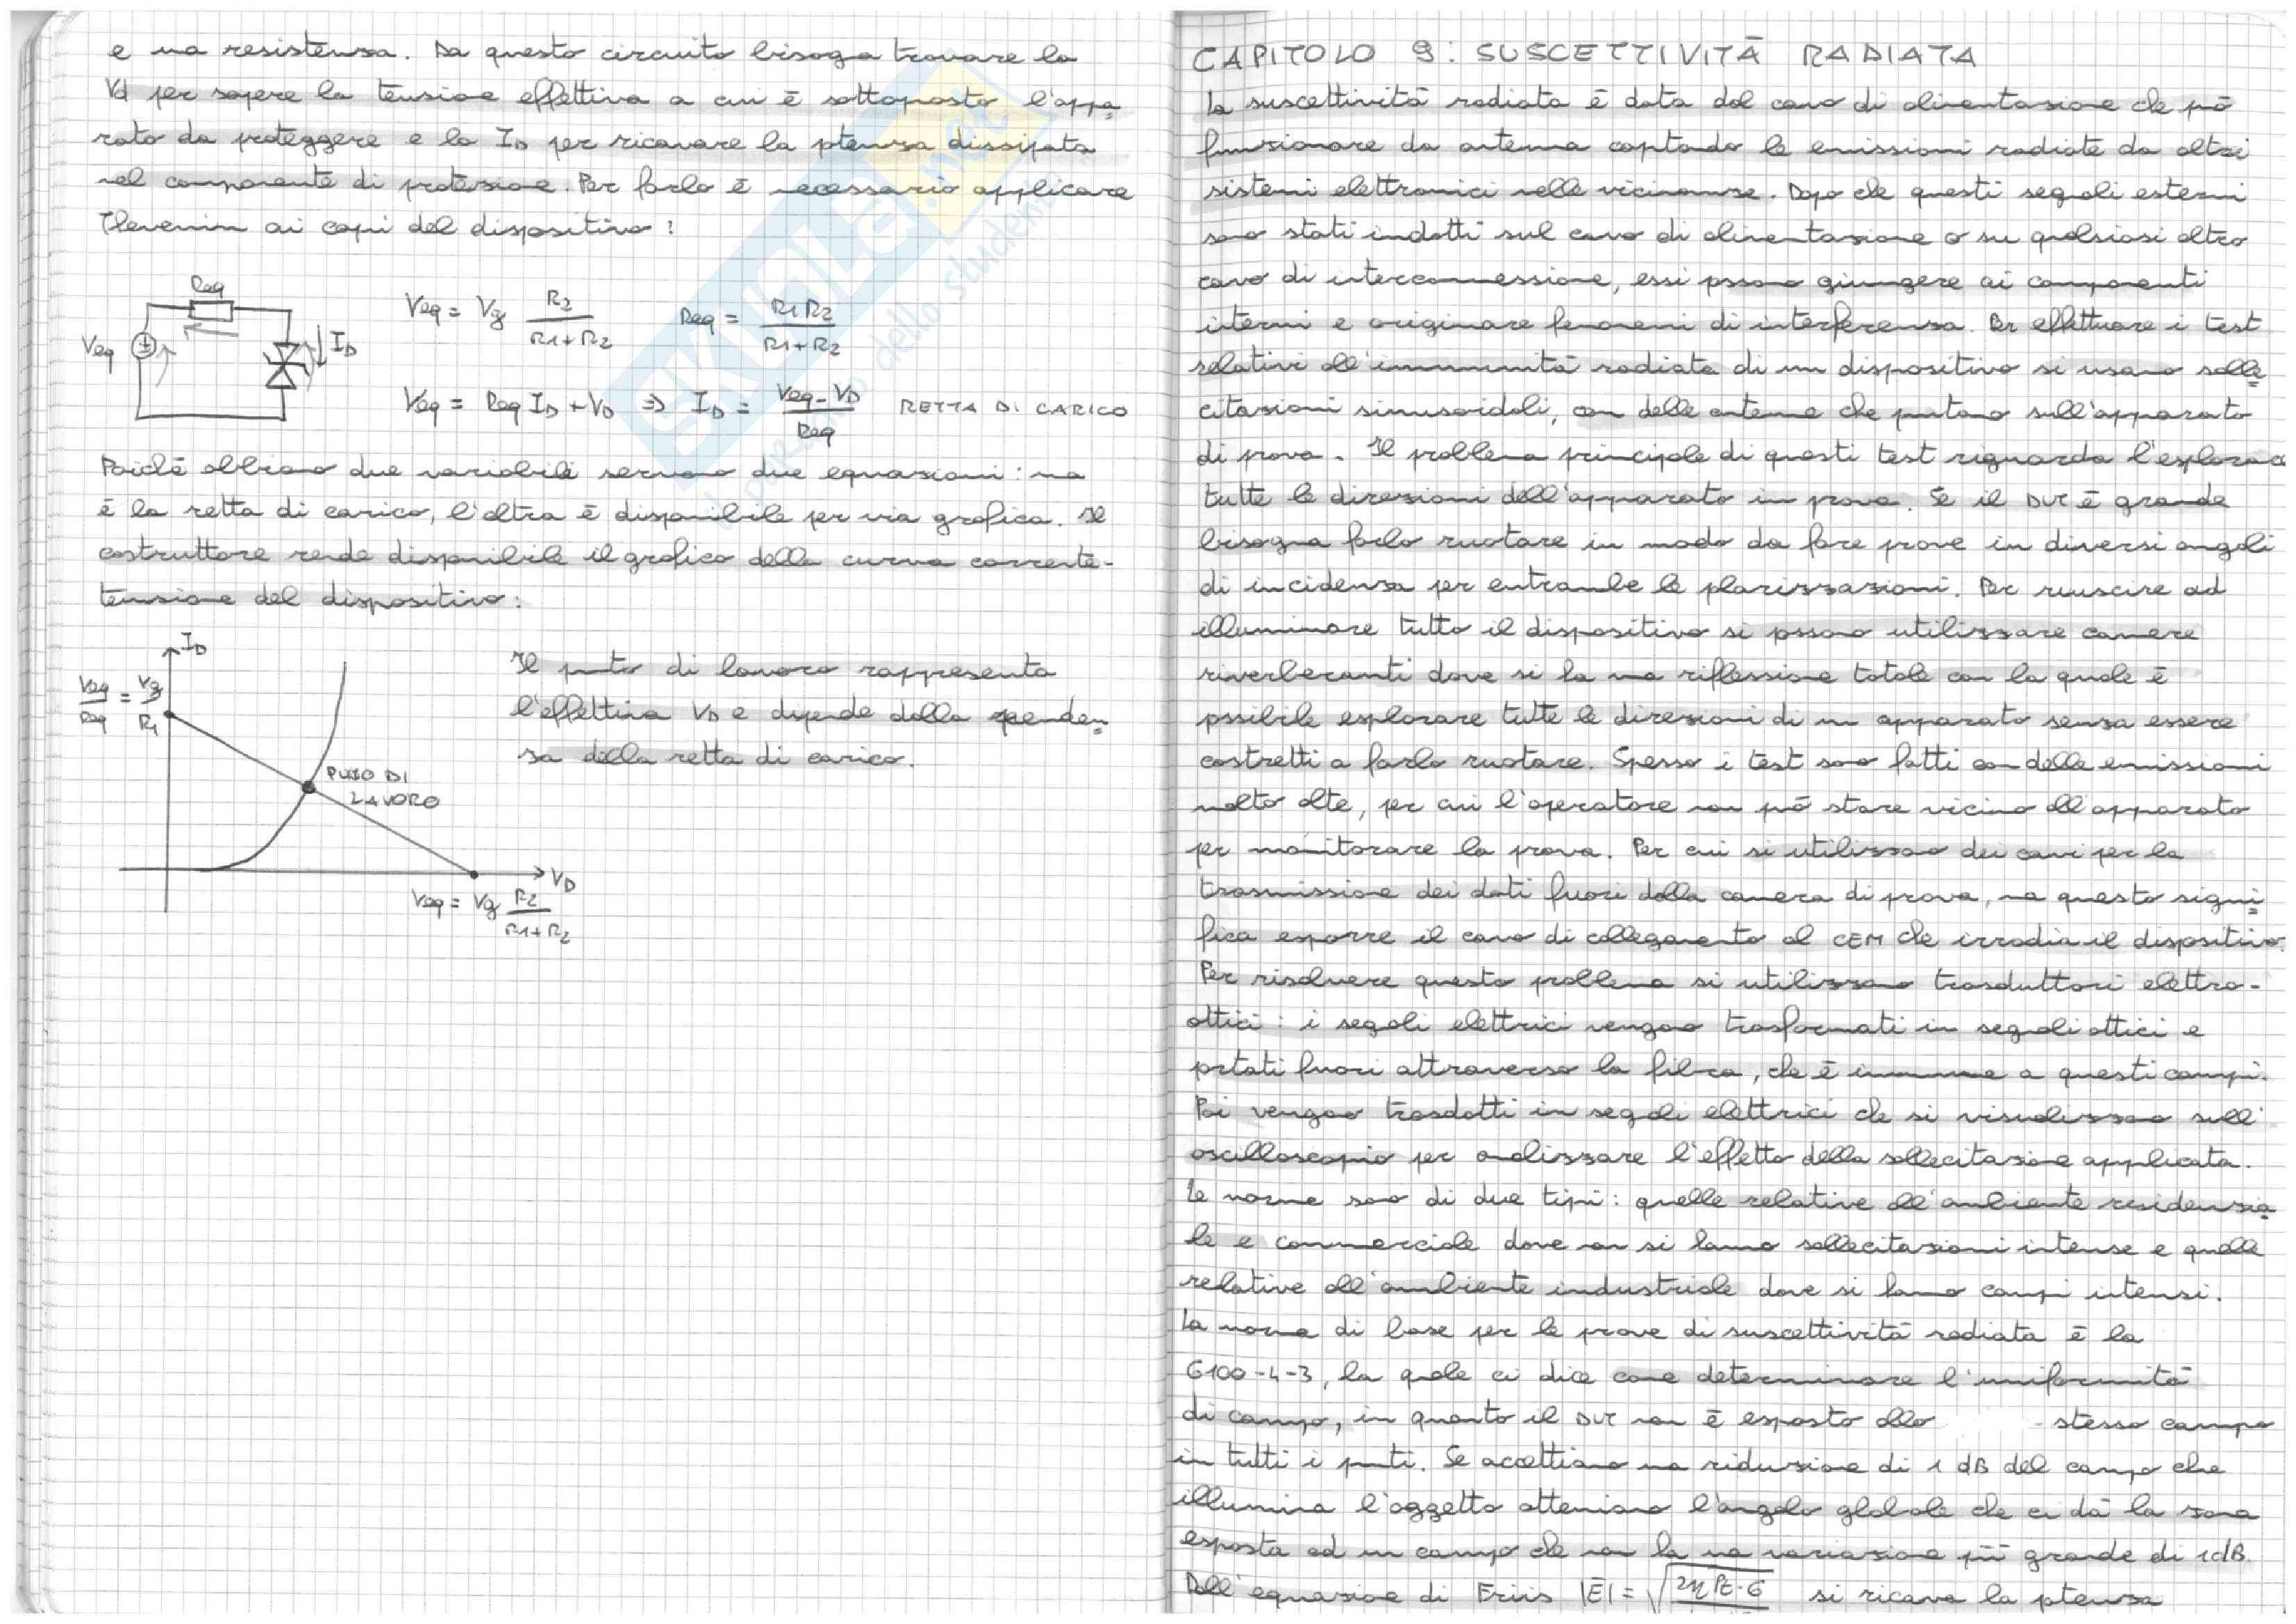 e una resistenza. Da questo circuito bisogna trovare la
Vd per sapere la tensione effettiva a cui è sottoposto l'appa
rato da proteggere e la ID per ricavare la potenza dissipata
nel componente di protezione. Per farlo è necessario applicare
Thevenin ai capi del dispositivo:
Req
Veq
ID
Veq = Vg R2/(R1+R2)
Req = R1R2/(R1+R2)
Veq = Req ID + VD ⇒ ID = (Veq - VD)/Req RETTA DI CARICO
Poiché abbiamo due variabili servono due equazioni: una
è la retta di carico, l'altra è disponibile per via grafica. Il
costruttore rende disponibile il grafico della curva corrente-
tensione del dispositivo:
ID
Veq/Req = Vg/R1
PUNTO DI
LAVORO
VD
Veq = Vg R2/(R1+R2)
Il punto di lavoro rappresenta
l'effettiva VD e dipende dalla penden
za della retta di carico.
SKUOLA.net
il paradiso dello studente
CAPITOLO 9: SUSCETTIVITÀ RADIATA
La suscettività radiata è data dal cavo di alimentazione che può
funzionare da antenna captando le emissioni radiate da altri
sistemi elettronici nelle vicinanze. Dopo che questi segnali esterni
sono stati indotti sul cavo di alimentazione o su qualsiasi altro
cavo di interconnessione, essi possono giungere ai componenti
interni e originare fenomeni di interferenza. Per effettuare i test
relativi all'immunità radiata di un dispositivo si usano solle
citazioni sinusoidali, con delle antenne che puntano sull'apparato
di prova. Il problema principale di questi test riguarda l'esplorare
tutte le direzioni dell'apparato in prova. Se il DUT è grande
bisogna farlo ruotare in modo da fare prove in diversi angoli
di incidenza per entrambe le polarizzazioni. Per riuscire ad
illuminare tutto il dispositivo si possono utilizzare camere
riverberanti dove si ha una riflessione totale con la quale è
possibile esplorare tutte le direzioni di un apparato senza essere
costretti a farlo ruotare. Spesso i test sono fatti con delle emissioni
molto alte, per cui l'operatore non può stare vicino all'apparato
per monitorare la prova. Per cui si utilizzano dei cavi per la
trasmissione dei dati fuori dalla camera di prova, ma questo signi
fica esporre il cavo di collegamento al CEM che irradia il dispositivo.
Per risolvere questo problema si utilizzano trasduttori elettro-
ottici: i segnali elettrici vengono trasformati in segnali ottici e
portati fuori attraverso la fibra, che è immune a questi campi.
Poi vengono trasdotti in segnali elettrici che si visualizzano sull'
oscilloscopio per analizzare l'effetto della sollecitazione applicata.
Le norme sono di due tipi: quelle relative all'ambiente residenzia
le e commerciale dove non si hanno sollecitazioni intense e quelle
relative all'ambiente industriale dove si hanno campi intensi.
La norma di base per le prove di suscettività radiata è la
6100-4-3, la quale ci dice come determinare l'uniformità
di campo, in quanto il DUT non è esposto allo stesso campo
in tutti i punti. Se accettiamo una riduzione di 1 dB del campo che
illumina l'oggetto otteniamo l'angolo globale che ci dà la zona
esposta ad un campo che non ha una variazione più grande di 1dB.
Dall'equazione di Friis |E| = √(2η Pt·G si ricava la potenza